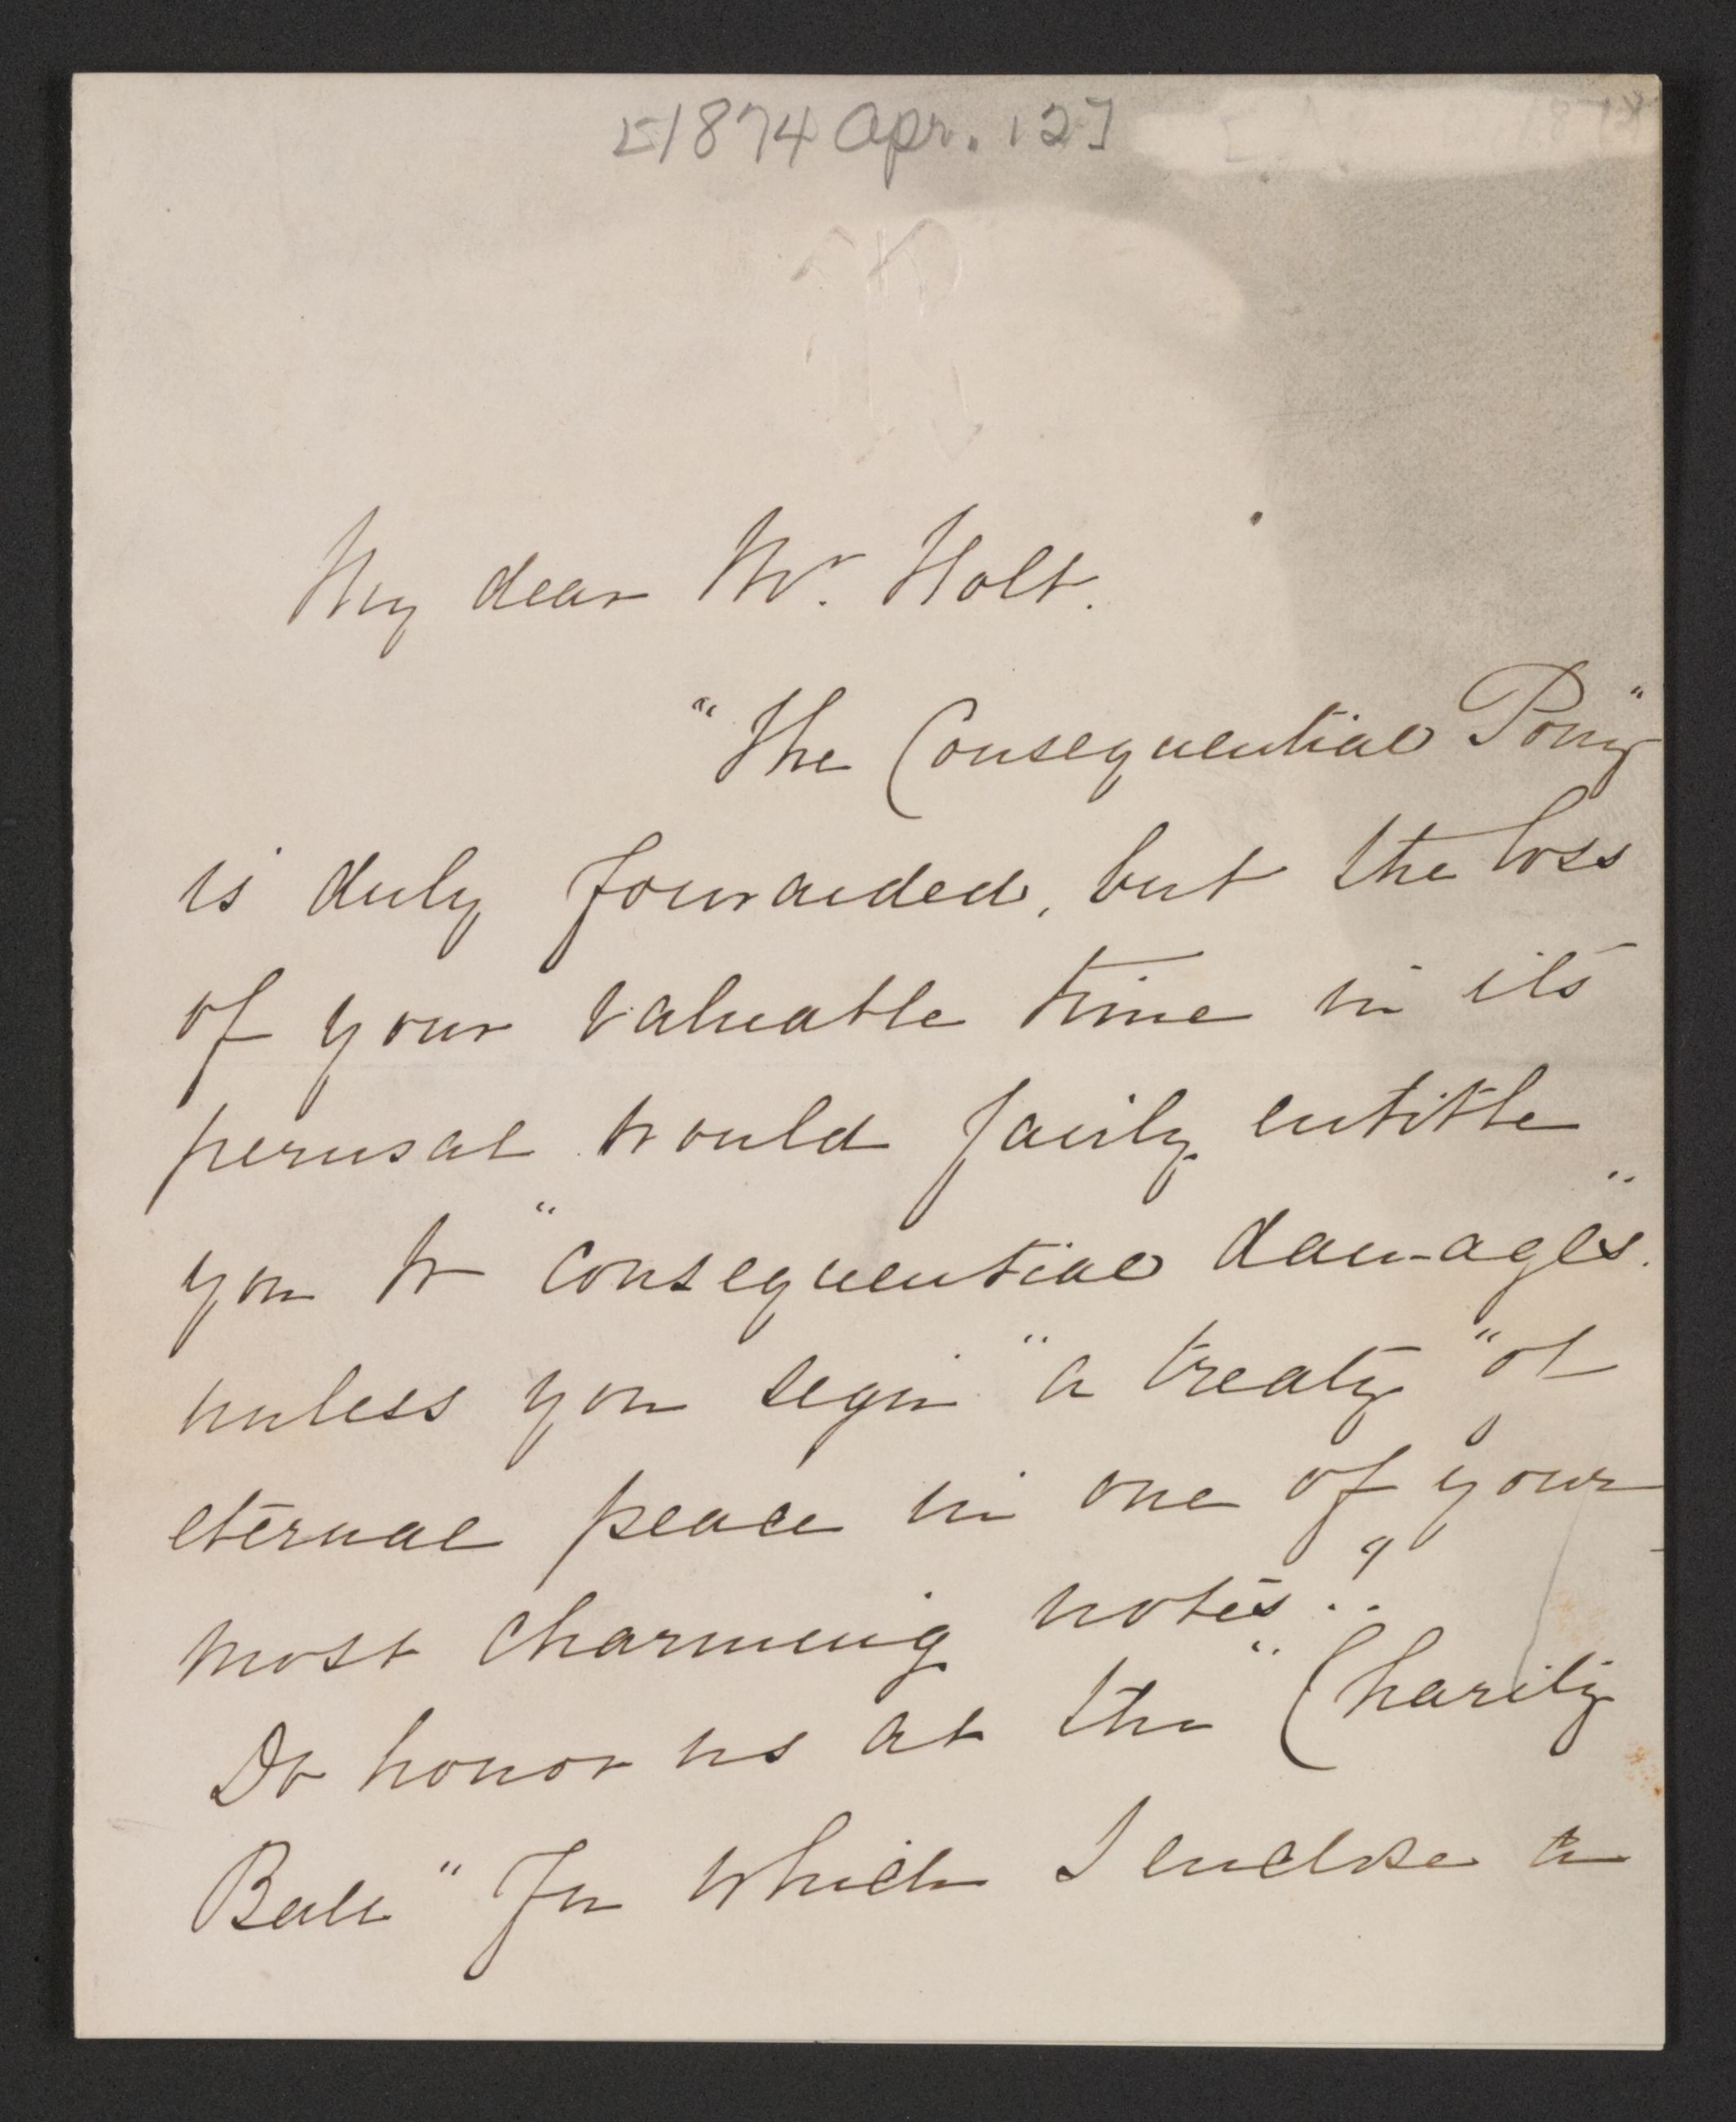 [1874 Apr. 12]
My dear Mr. Holt.
"The Consequential Pony"
is duly forwarded, but the loss
of your valuable time in its
perusal would fairly entitle
you to "consequential damages".
unless you sign "a treaty" of
eternal peace in one of your
most charming notes..
Do honor us at the "Charity
Ball" for which I enclose a